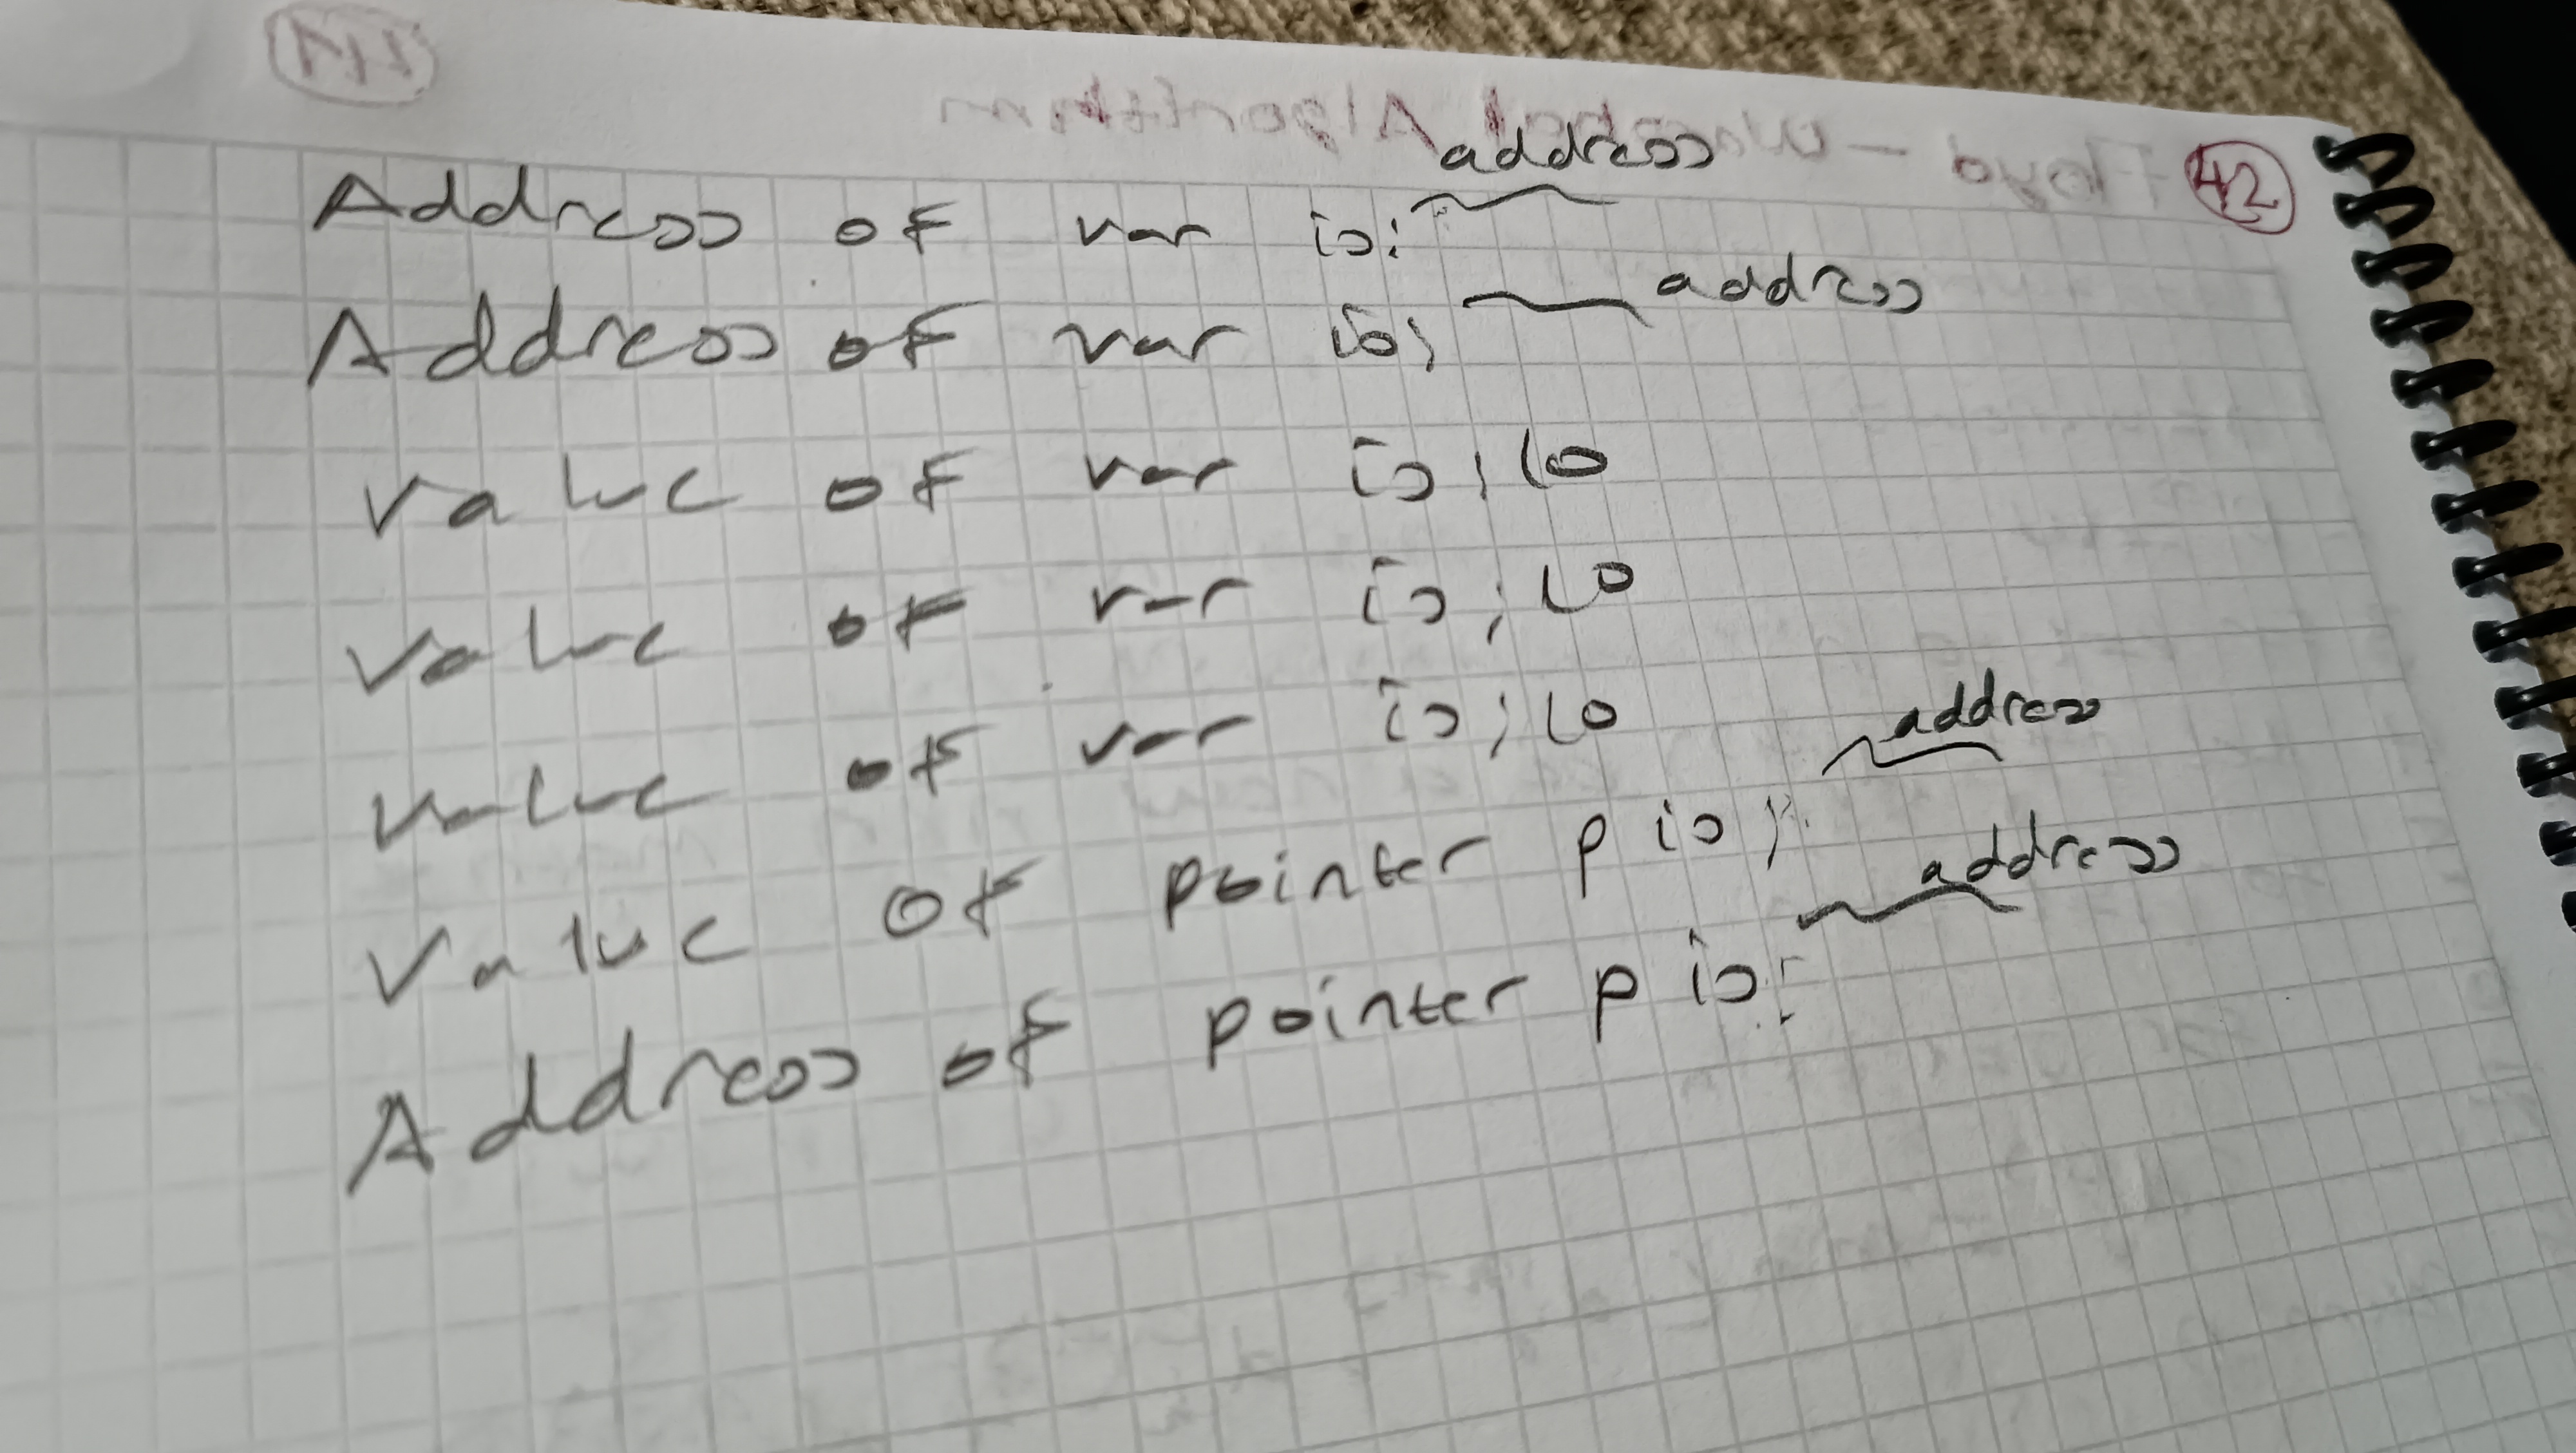 42
Address of var is: address
Address of var is; address
Value of var is; 10
Value of var is; 10
Value of var is; 10
Value of pointer p is; address
Address of pointer p is: address
Floyd - Warshal Algorithm